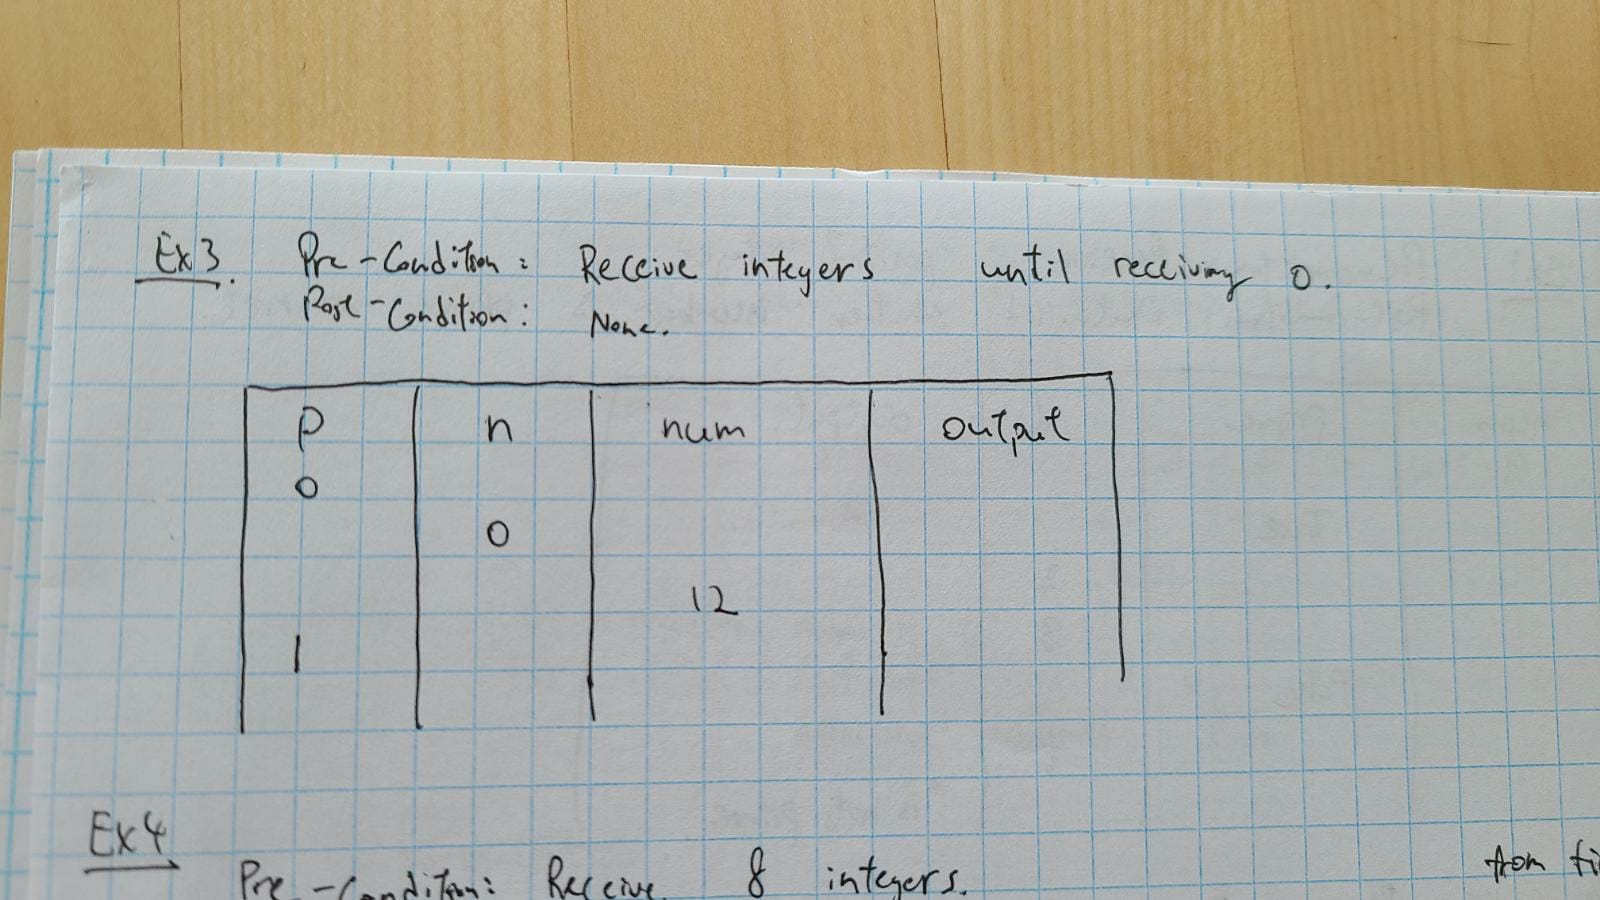 Ex3. Pre-Condition: Receive integers until receiving 0.
Post-Condition: None.
p n num output
0
0
12
1
Ex4
Pre-Condition: Receive 8 integers. from